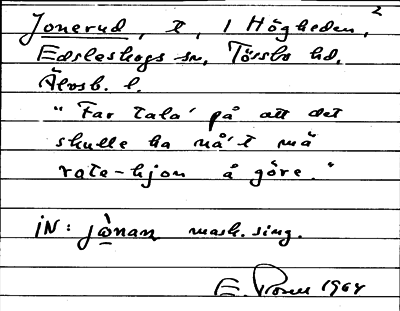 2
Jonerud, t, 1 Högheden,
Edsleskogs sn, Tössbo hd,
Älvsb. l.
"Far tala' på att det
skulle ha nå't må
rate-hjon å göre."
iN: jònan mask. sing.
E. 1964